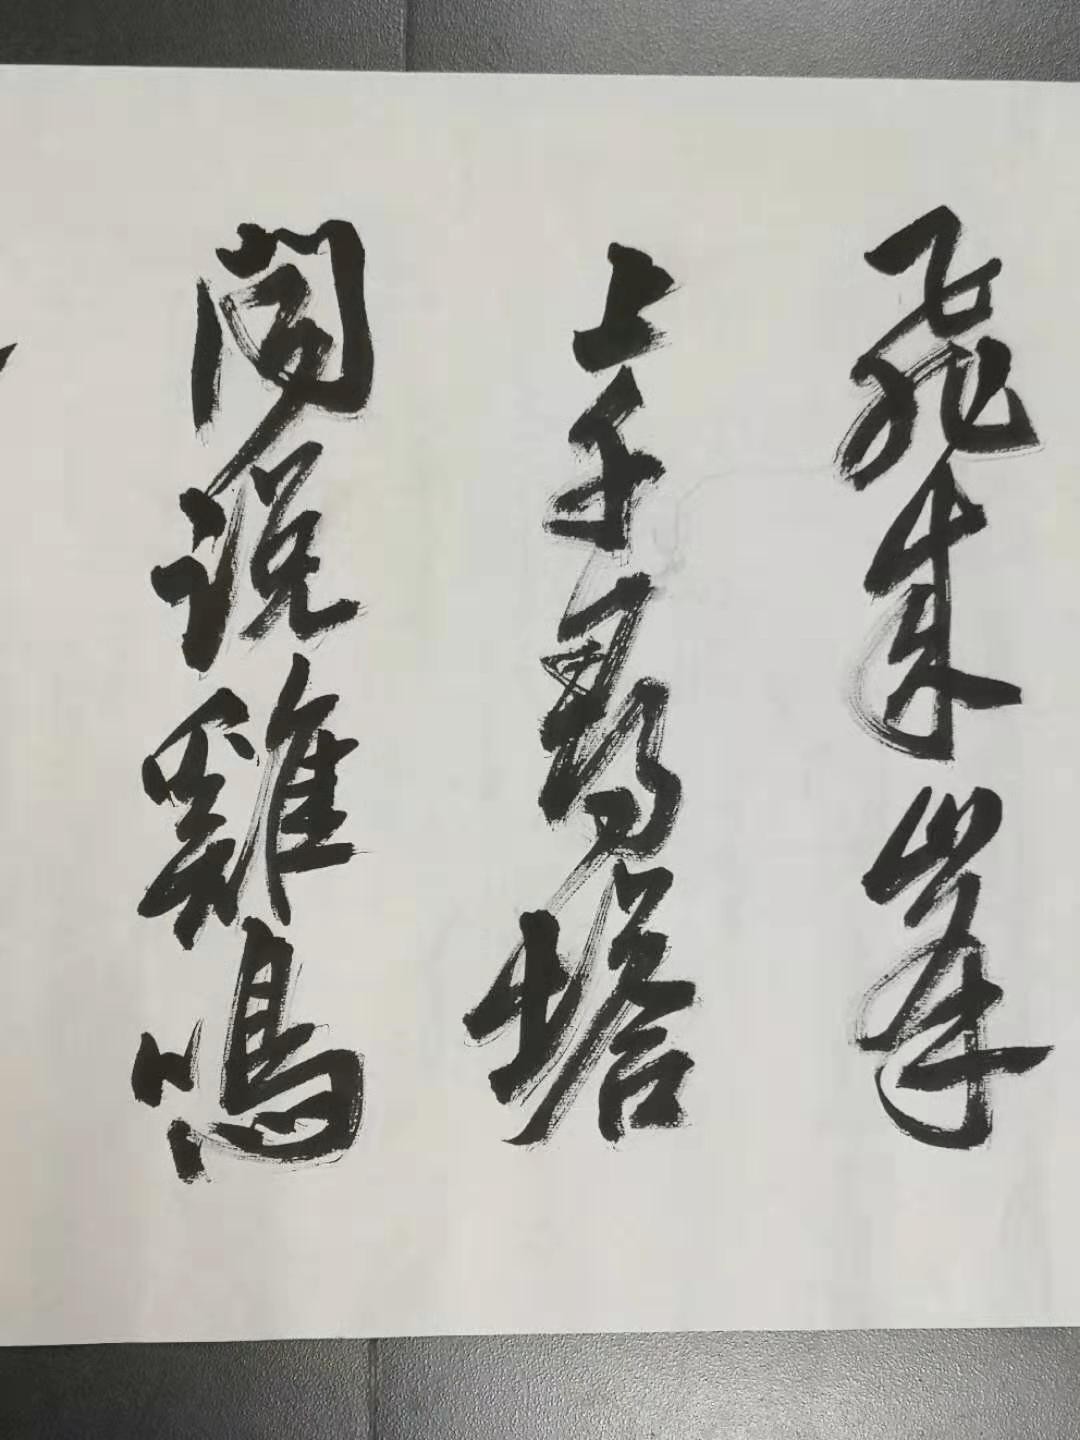 飛来峯
上千尋塔
聞說雞鳴